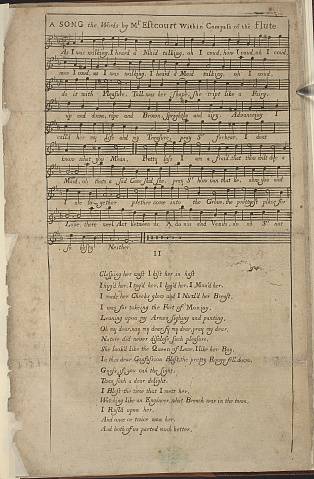 A SONG the Words by Mr Estcourt Within Compass of the Flute
As I was walking, I heard a Maid talking, oh I coud, how I coud, oh I coud,
now I coud, as I was walking, I heard a Maid talking, oh I coud,
do it with Pleasure. Tall was her shape, she tript like a Fairy,
up and down, ripe and Brown, Spreightly and airy, Advanceing I
call'd her my life and my Treasure, pray Sr forbear, I dont
know what you Mean, Pretty lass I am a fraid that thou wilt dye a
Maid, oh thats a sad Case, sad case, pray Sr how can that be, why you and
I are to gether
Love, there weel Act between us, Adonis and Venus, oh no Sr not
Neither
II
Clasping her wast I kist her in hast
I hug'd her, I tug'd her, I lugg'd her, I Maul'd her,
I made her Cheeks glow and I Nuzl'd her Breast,
I was for takeing the Fort of
Leaning upon my Armes sighing and panting,
Oh my dear, nay my dear, fy my dear, pray my dear,
Nature did never disclose such pleasure,
She look'd like the Queen of Love I like her Boy,
In this dear Confussion Blest, the pretty Rogue fell down,
Guess, if you can the sight,
Then such a dear delight,
I Blest the time that I mett her,
Watching like an Engineer, what Breach was in the town,
I Rusht upon her,
And once or twice won her,
And both of us parted much better,